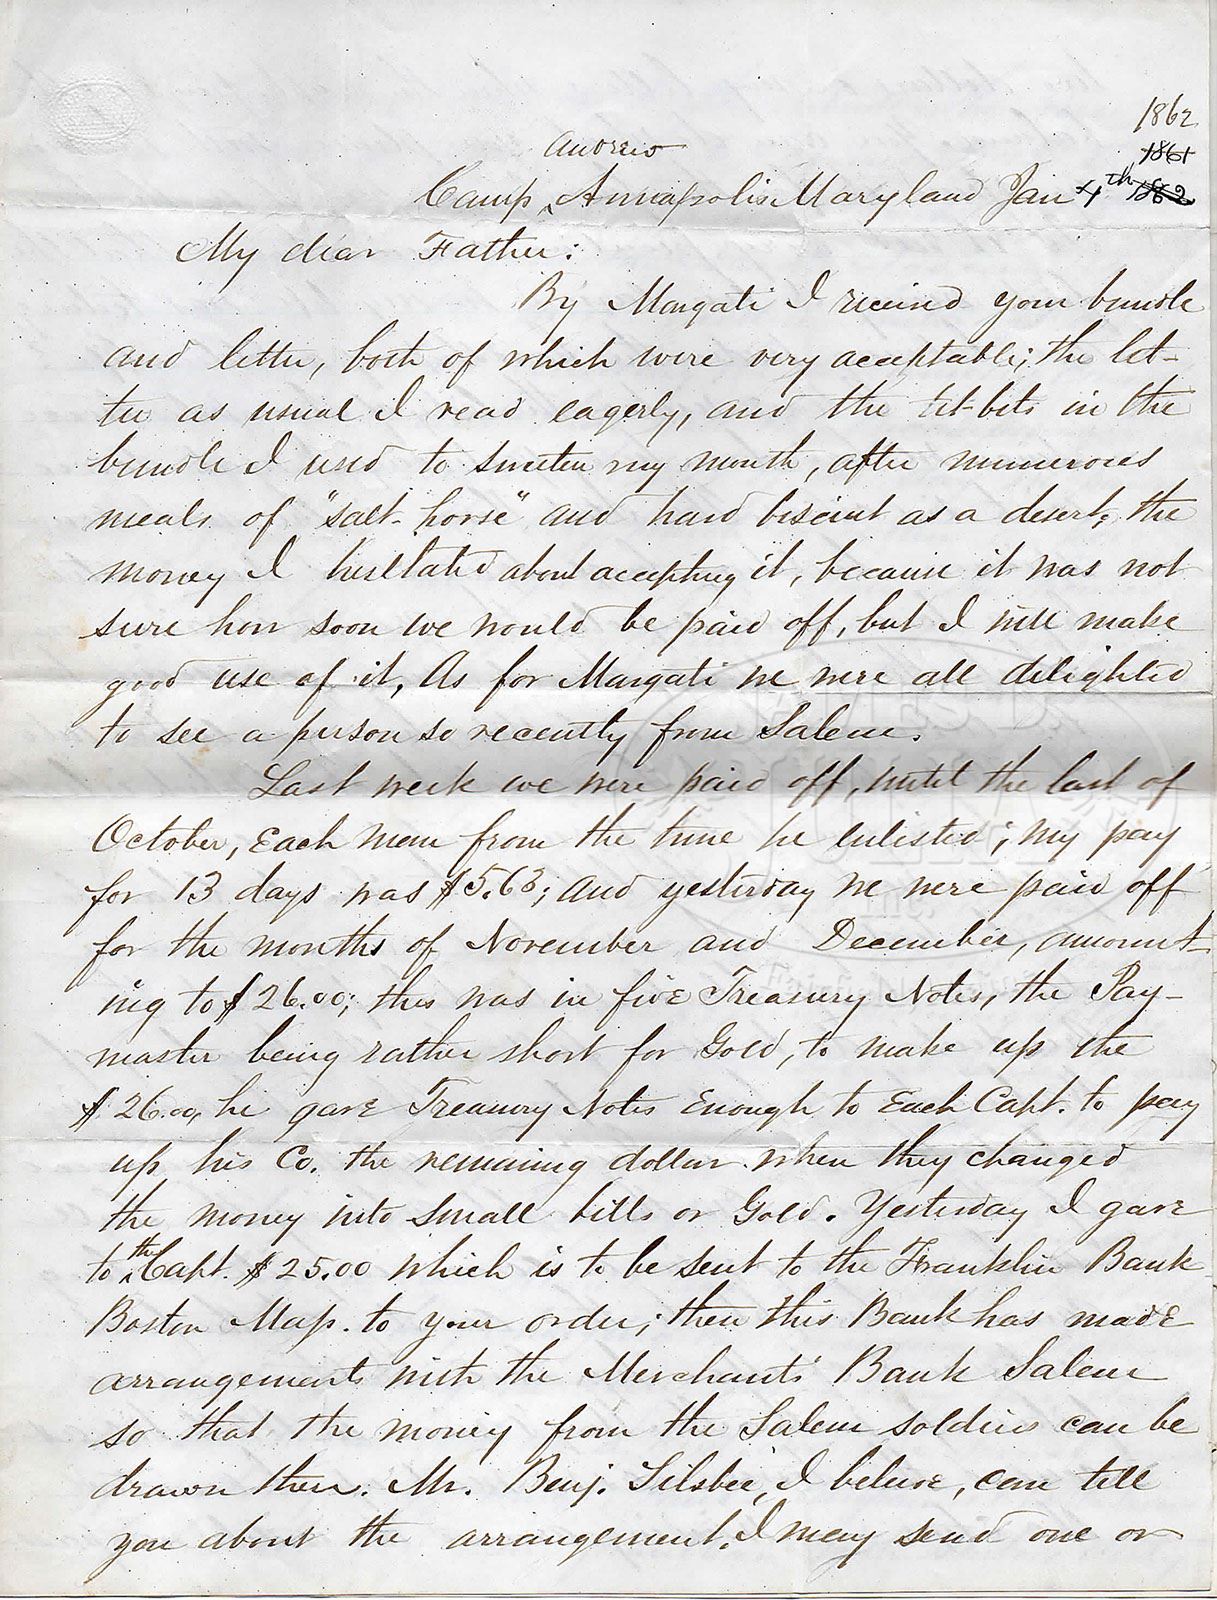 1862
1861
Andrew
Camp ‸ Annapolis Maryland Jan 4th 1862
My dear Father:
By Margati I received your bundle
and letter, both of which were very acceptable; the let-
ter as usual I read eagerly, and the tit-bits in the
bundle I used to sweeten my mouth, after numerous
meals of "salt-horse" and hard biscuit as a desert; the
money I hesitated about accepting it, because it was not
sure how soon we would be paid off, but I will make
good use of it. As for Margati we were all delighted
to see a person so recently from Salem.
Last week we were paid off, until the last of
October, Each man from the time he enlisted; my pay
for 13 days was $5.63; and yesterday we were paid off
for the months of November and December, amount-
ing to $26.00; this was in five Treasury Notes, the Pay-
master being rather short for Gold, to make up the
$26.00, he gave Treasury Notes Enough to Each Capt. to pay
up his Co. the remaining dollar when they changed
the money into small bills or Gold. Yesterday I gave
to ‸the Capt. $25.00 which is to be sent to the Franklin Bank
Boston Mass. to your order; then this Bank has made
arrangements with the Merchants' Bank Salem
so that the money from the Salem soldiers can be
drawn there. Mr. Benj. Silsbee, I believe, can tell
you about the arrangement. I may send one or